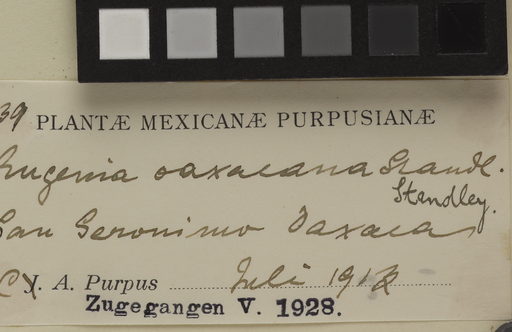 39 PLANTÆ MEXICANÆ PURPUSIANÆ
Eugenia oaxacana Standl.
Standley.
San Geronimo Oaxaca
C J. A. Purpus Juli 191
Zugegangen V. 1928.